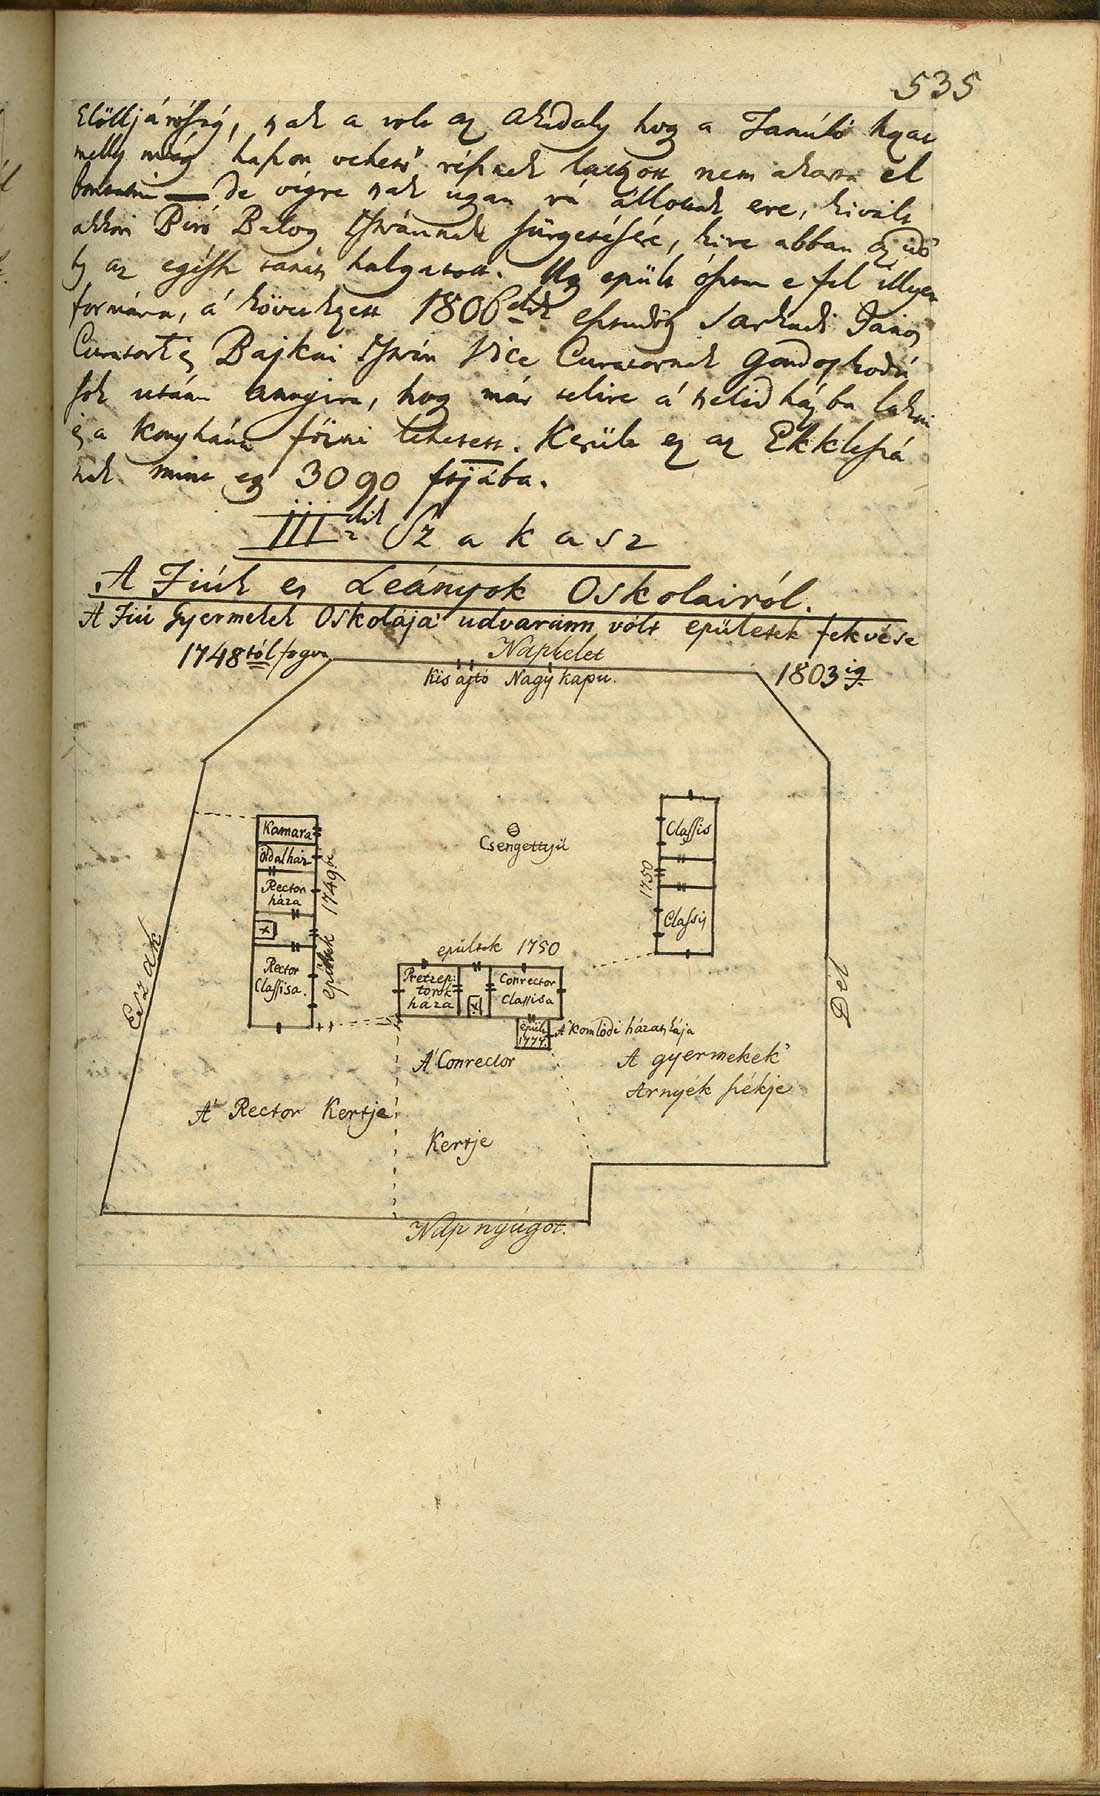 535
Elölljáróság, tsak a volt az akadaly hog a Tanúló
melly még hason vehető résznek nem akarta el
de végre tsak ugan rá állottak erre, kivált
akkori Biró Balog Istvánnak sürgetésére, kire abban az idő
az egész tanáts halgatott. Ug epüle illyen
formára, á következett 1806dik esztendőb Sarkadi János
Curator és Bajkai István Vice Curatornak gondoskodá
sok után annyira, hog már telire á tselédházba lakni
és a konyhánn főzni lehetett. Kerüle ez az Ekklesiá
nak mint eg 3090 ftjába.
IIIdik Szakasz
A Fiúk es Leányok Oskolairól.
A Fiú Gyermekek Oskolája udvaránn vólt epületek fekvése
1748tól fogva
Napkelet
1803ig
Kis ajtó Nagy kapu.
Kamara
Oldalház
Rector
háza
x
Rector
Classisa.
epültek 1749be
Csengettyü
Classis
1750
Classis
epültek 1750
Pretzep:
torok
háza
x
Conrector
Classisa
epült
1777.
A' komlódi házatskája
Eszak
Del
A' Conrector
Kertje
A' Rector Kertje
A gyermekek
Arnyék székje
Nap nyúgot.